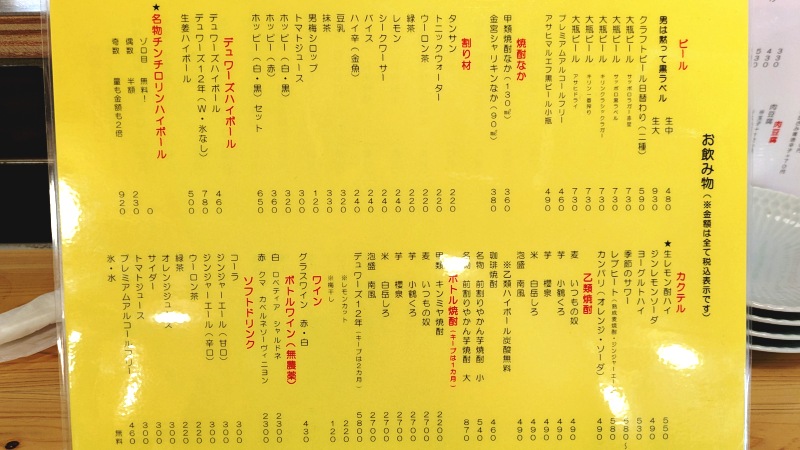 お飲み物（※金額は全て税込表示です）
ビール
男は黙って黒ラベル 生中 480
生大 930
クラフトビール日替わり（二種） 590
大瓶ビール サッポロラガー赤星 730
大瓶ビール サッポロ黒ラベル 730
大瓶ビール キリンクラシックラガー 730
大瓶ビール キリン一番搾り 730
大瓶ビール アサヒドライ 730
プレミアムアルコールフリー 460
アサヒマルエフ黒ビール小瓶 490
焼酎なか
甲類焼酎なか（130㎖） 360
金宮シャリキンなか（90㎖） 380
割り材
タンサン 220
トニックウォーター 220
ウーロン茶 220
緑茶 220
レモン 240
シークワーサー 240
バイス 240
ハイ辛（金魚） 240
豆乳 320
抹茶 330
男梅シロップ 120
トマトジュース 300
ホッピー（白・黒） 320
ホッピー（赤） 360
ホッピー（白・黒）セット 650
デュワーズハイボール
デュワーズハイボール 460
デュワーズ12年（W・氷なし） 780
生姜ハイボール 500
★名物チンチロリンハイボール
ゾロ目 無料！ 0
偶数 半額 230
奇数 量も金額も2倍 920
カクテル
★生レモン酎ハイ 550
ジンレモンソーダ 530
ヨーグルトハイ 490
季節のサワー 580〜
カンパリ（オレンジ・ソーダ） 490
乙類焼酎
麦 いつもの奴 490
芋 小鶴くろ 490
芋 櫻泉 490
米 白岳しろ 490
泡盛 南風 490
※乙類ハイボール炭酸無料
珈琲焼酎 460
名物 前割りやかん芋焼酎 小 540
名物 前割りやかん芋焼酎 大 870
ボトル焼酎（キープは1カ月）
甲類 キンミヤ焼酎 2200
麦 いつもの奴 2700
芋 小鶴くろ 2700
芋 櫻泉 2700
米 白岳しろ 2700
泡盛 南風 2700
デュワーズ12年（キープは2カ月） 5800
※レモンカット 220
※梅干し 120
ワイン
グラスワイン 赤・白 430
ボトルワイン（無農薬）
白 ロペティア シャルドネ 2300
赤 クマ カベルネソーヴィニヨン 2300
ソフトドリンク
コーラ 300
ジンジャーエール（甘口） 300
ジンジャーエール（辛口） 300
ウーロン茶 220
緑茶 220
オレンジジュース 300
サイダー 300
トマトジュース 300
プレミアムアルコールフリー 460
氷・水 無料
肉豆腐